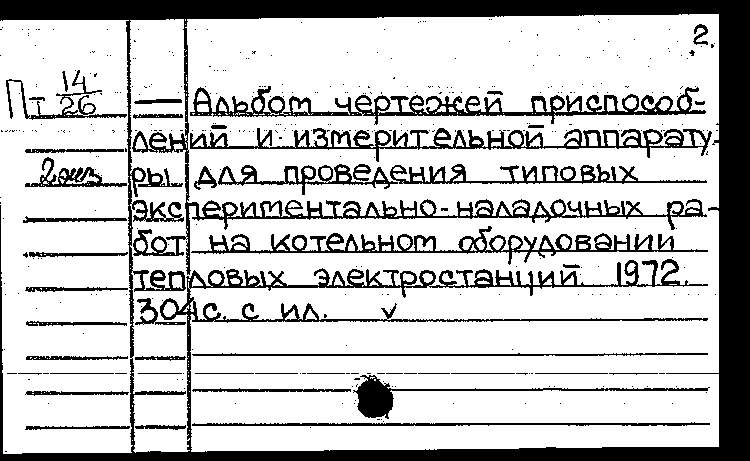 2.
Пт 14/26 — Альбом чертежей приспособ-
лений и измерительной аппарату-
2 экз ры для проведения типовых
экспериментально-наладочных ра-
бот на котельном оборудовании
тепловых электростанций. 1972.
304с. с ил. v